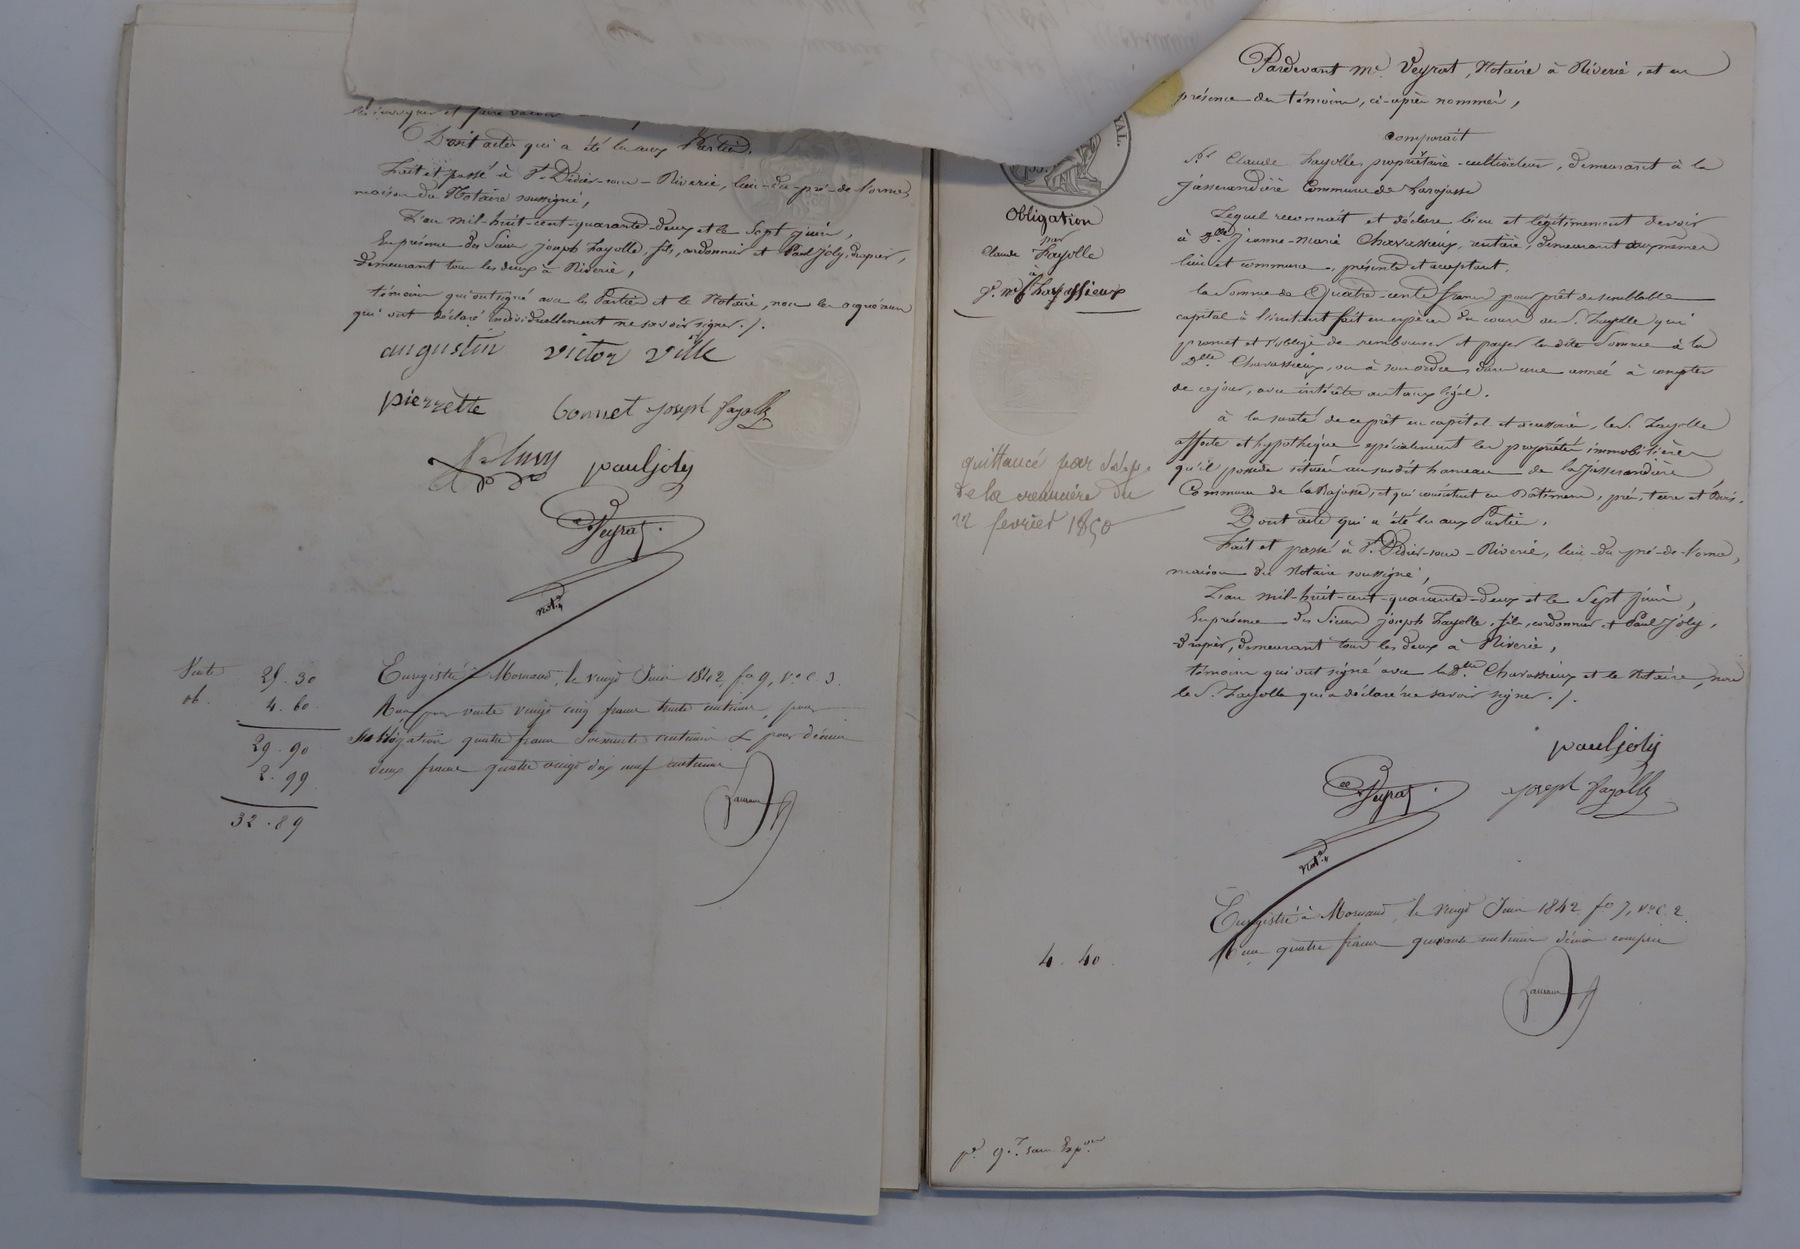 et faire valoir
Dont acte qui a été lu aux Parties.
Fait et passé à St. Didier-sous-Riverie, lieu-du-pré-de-l'orme,
maison du Notaire soussigné,
L'an mil-huit-cent-quarante-deux et le Sept juin,
En présence des Sieurs joseph Fayolle, fils, cordonnier et Paul Joly, drapier,
demeurant tous les deux à Riverie,
témoins qui ont signé avec les Parties et le Notaire, non les acquéreurs
qui ont déclaré individuellement ne savoir signer ./.
augustin victor ville
pierrette bonnet joseph fayolle
paul joly
Veyrat
not.re
Vente 25. 30
ob. 4. 60
29. 90
2. 99
32. 89
Enregistré à Mornand, le vingt Juin 1842, fo 9, Vo c. 3.
Reçu pour vente vingt cinq francs trente centimes, pour
obligation quatre francs soixante centimes & pour décime
deux francs quatre vingt dix neuf centimes
Pardevant Me. Veyrat, Notaire à Riverie, et en
présence des témoins, ci-après nommés,
comparait
Sr. Claude Fayolle, propriétaire-cultivateur, demeurant à la
Jasserandière Commune de Larajasse
Lequel reconnait et déclare bien et légitimement devoir
à Dlle. Jeanne-Marie Chavassieux, rentière, demeurant aux mêmes
lieu et commune, présente et acceptant,
la Somme de Quatre-cents francs pour prêt de semblable
capital à l'instant fait en espèces du cours au S. Fayolle qui
promet et s'oblige de rembourser et payer la dite Somme à la
Dlle. Chavassieux, ou à son ordre, dans une année à compter
de ce jour, avec intérêts au taux légal.
à la sureté de ce prêt en capital et accessoires, le S. Fayolle
affecte et hypothèque spécialement les propriétés immobilières
qu'il possède situées au susdit hameau de la Jasserandière
Commune de la Rajasse, et qui consistent en Bâtiments, prés, terre et Bois.
Dont acte qui a été lu aux Parties.
Fait et passé à St. Didier-sous-Riverie, lieu-du-pré-de-l'orme,
maison du Notaire soussigné,
L'an mil-huit-cent-quarante-deux et le Sept juin,
En présence des Sieurs joseph Fayolle, fils, cordonnier et Paul Joly,
drapier, demeurant tous les deux à Riverie,
témoins qui ont signé avec la Dlle. Chavassieux et le Notaire, non
le S. Fayolle qui a déclaré ne savoir signer ./.
paul joly
Veyrat
joseph fayolle
not.re
Enregistré à Mornand, le vingt Juin 1842 fo 7, Vo c. 2.
Reçu quatre francs quarante centimes décime compris
4. 40.
Obligation
par
Claude Fayolle
à
Je. Me Chavassieux
quittancé par
de la créancière du
22 février 1850